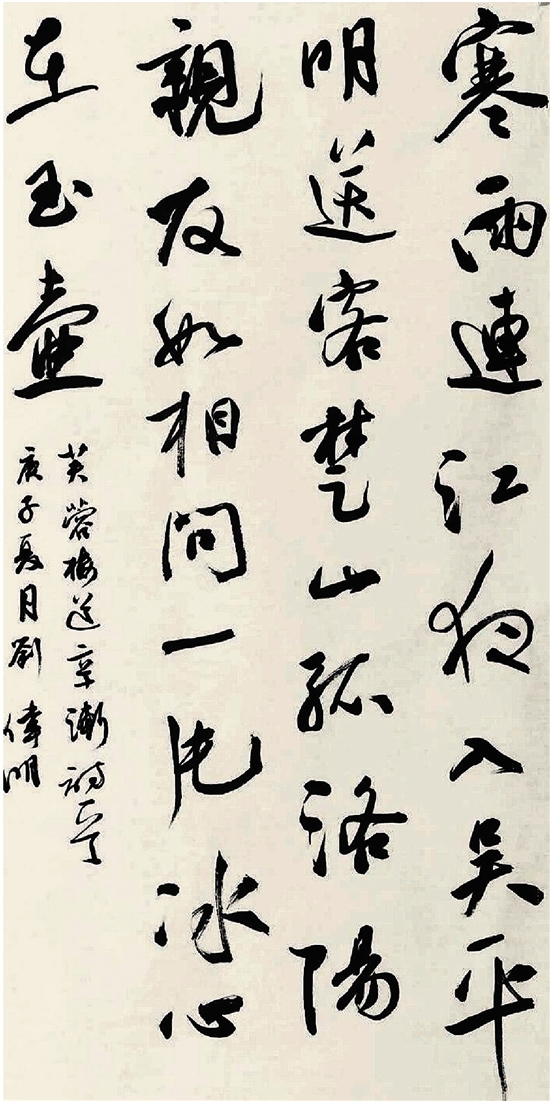 寒雨連江夜入吳平
明送客楚山孤洛陽
親友如相問一片冰心
在玉壺
芙蓉樓送辛漸詩一首
庚子夏月劉偉明